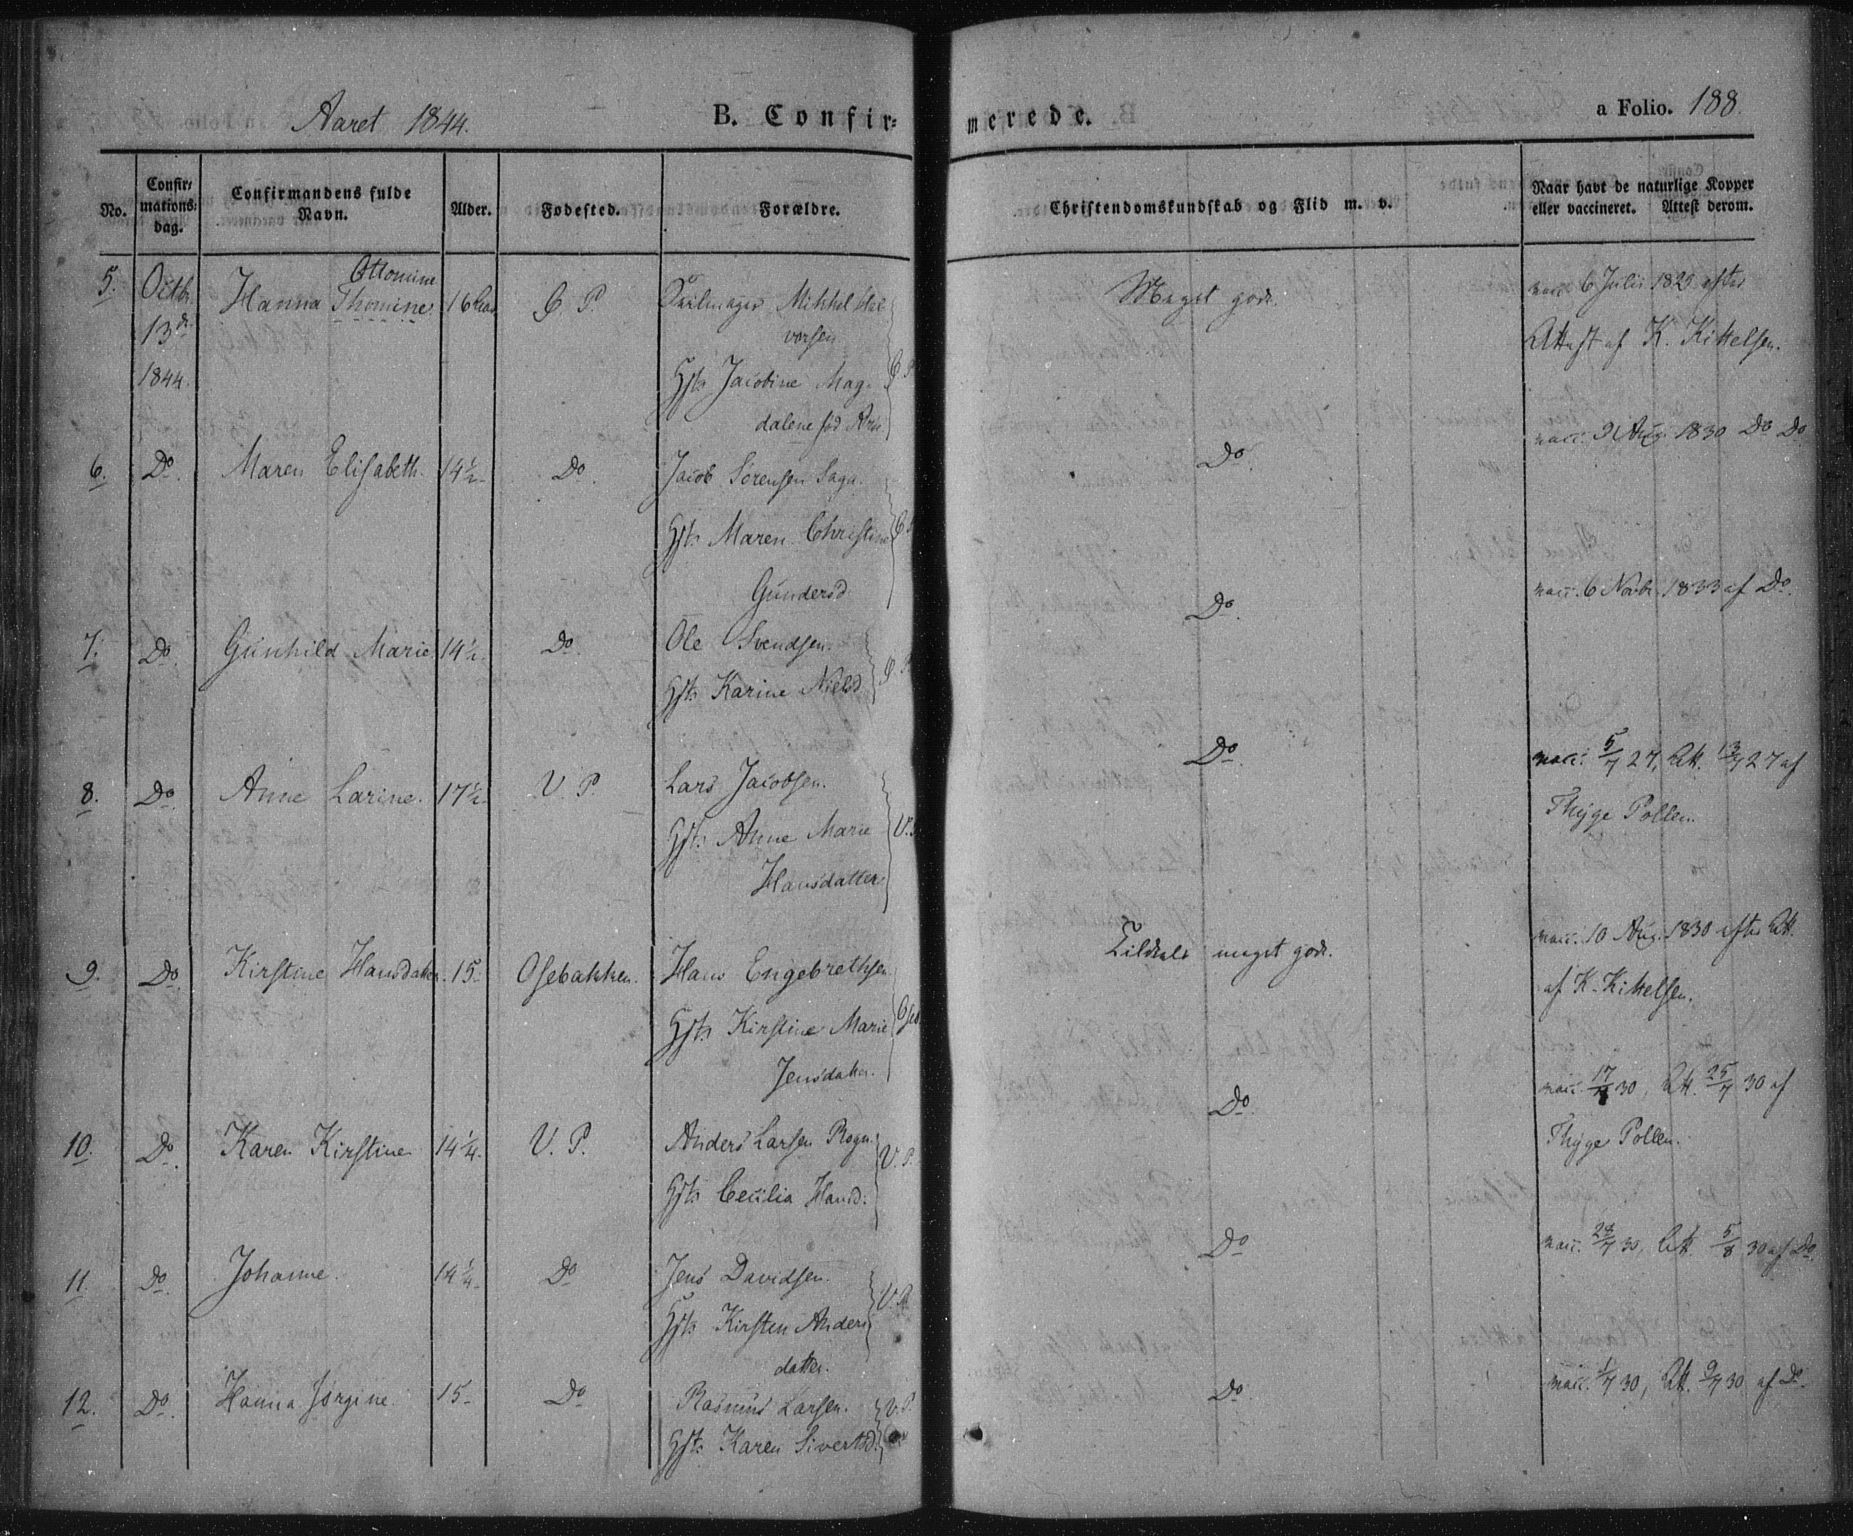 Aaret 1844.
B. Confir=
merede.
a Folio. 188.
No.
Confir= mations= dag.
Confirmandens fulde Navn.
Alder.
Fødested.
Forældre.
Christendomskundskab og Flid m. v.
Naar havt de naturlige Kopper eller vaccineret. Attest derom.
5.
Octbr 13de 1844.
Ottomine
Hanna Thomine
16
P.
Mikkel Hal
vorsen
Hst. Jacobine Mag-
dalene fød
Meget god.
vacc. 6 Julii 1829 efter
Attest af K. Kittelsen.
6.
Do.
Maren Elisabeth.
14½
Do.
Jacob Sørensen Saga
Hst. Maren Christine
Gundersd
Do.
vacc. 9 Aug. 1830 Do Do
7.
Do.
Gunhild Marie
14½
Do.
Ole Svendsen
Hst. Karine Nielsd
Do.
vacc. 6 Novbr. 1833 af Do.
8.
Do.
Anne Larine.
17½
V. P.
Lars Jacobsen.
Hst. Anne Marie
Hansdatter
V. P.
Do.
vacc. 5/7 27, Att. 13/7 27 af
Thyge Pollen.
9.
Do.
Kirstine Hansdatter.
15.
Osebakken.
Hans Engebrethsen
Hst. Kirstine Marie
Jensdatter.
Oseb
meget god.
vacc. 10 Aug. 1830 efter Att.
af K. Kittelsen.
10.
Do.
Karen Kirstine
14¼.
V. P.
Anders Larsen
Hst. Cecilia Hansd:
V. P.
Do.
vacc. 17/7 30, Att. 25/7 30 af
Thyge Pollen.
11.
Do.
Johanne.
14¼.
Do
Jens Davidsen.
Hst. Kirsten Anders
datter.
V. P.
Do
vacc. 28/7 30, Att. 5/8 30 af Do.
12.
Do.
Hanna Jørgine.
15.
Do
Rasmus Larsen.
Hst. Karen Sivertsd.
V. P.
Do
vacc. 1/7 30, Att. 9/7 30 af Do.